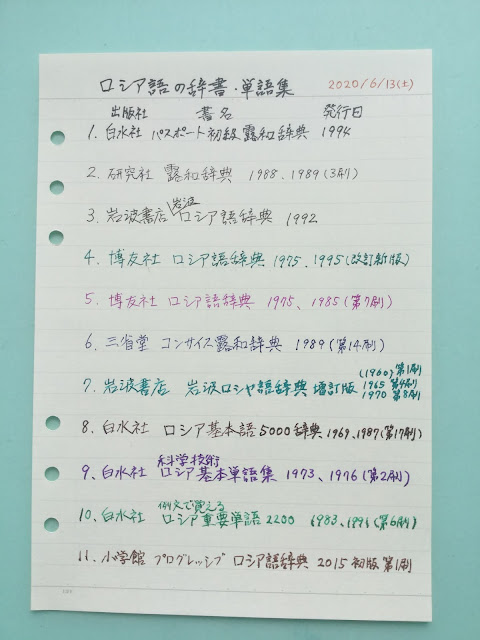 ロシア語の辞書・単語集 2020/6/13(土)
出版社 書名 発行日
1. 白水社 パスポート初級露和辞典 1994
2. 研究社 露和辞典 1988、1989(3刷)
岩波
3. 岩波書店 ロシア語辞典 1992
4. 博友社 ロシア語辞典 1975、1995(改訂新版)
5. 博友社 ロシア語辞典 1975、1985(第7刷)
6. 三省堂 コンサイス露和辞典 1989(第14刷)
(1960)第1刷
7. 岩波書店 岩波ロシヤ語辞典 増訂版 1965 第4刷
1970 第8刷
8. 白水社 ロシア基本語5000辞典 1969、1987(第17刷)
科学技術
9. 白水社 ロシア基本単語集 1973、1976(第2刷)
例文で覚える
10. 白水社 ロシア重要単語2200 1983、1991(第6刷)
11. 小学館 プログレッシブ ロシア語辞典 2015 初版 第1刷